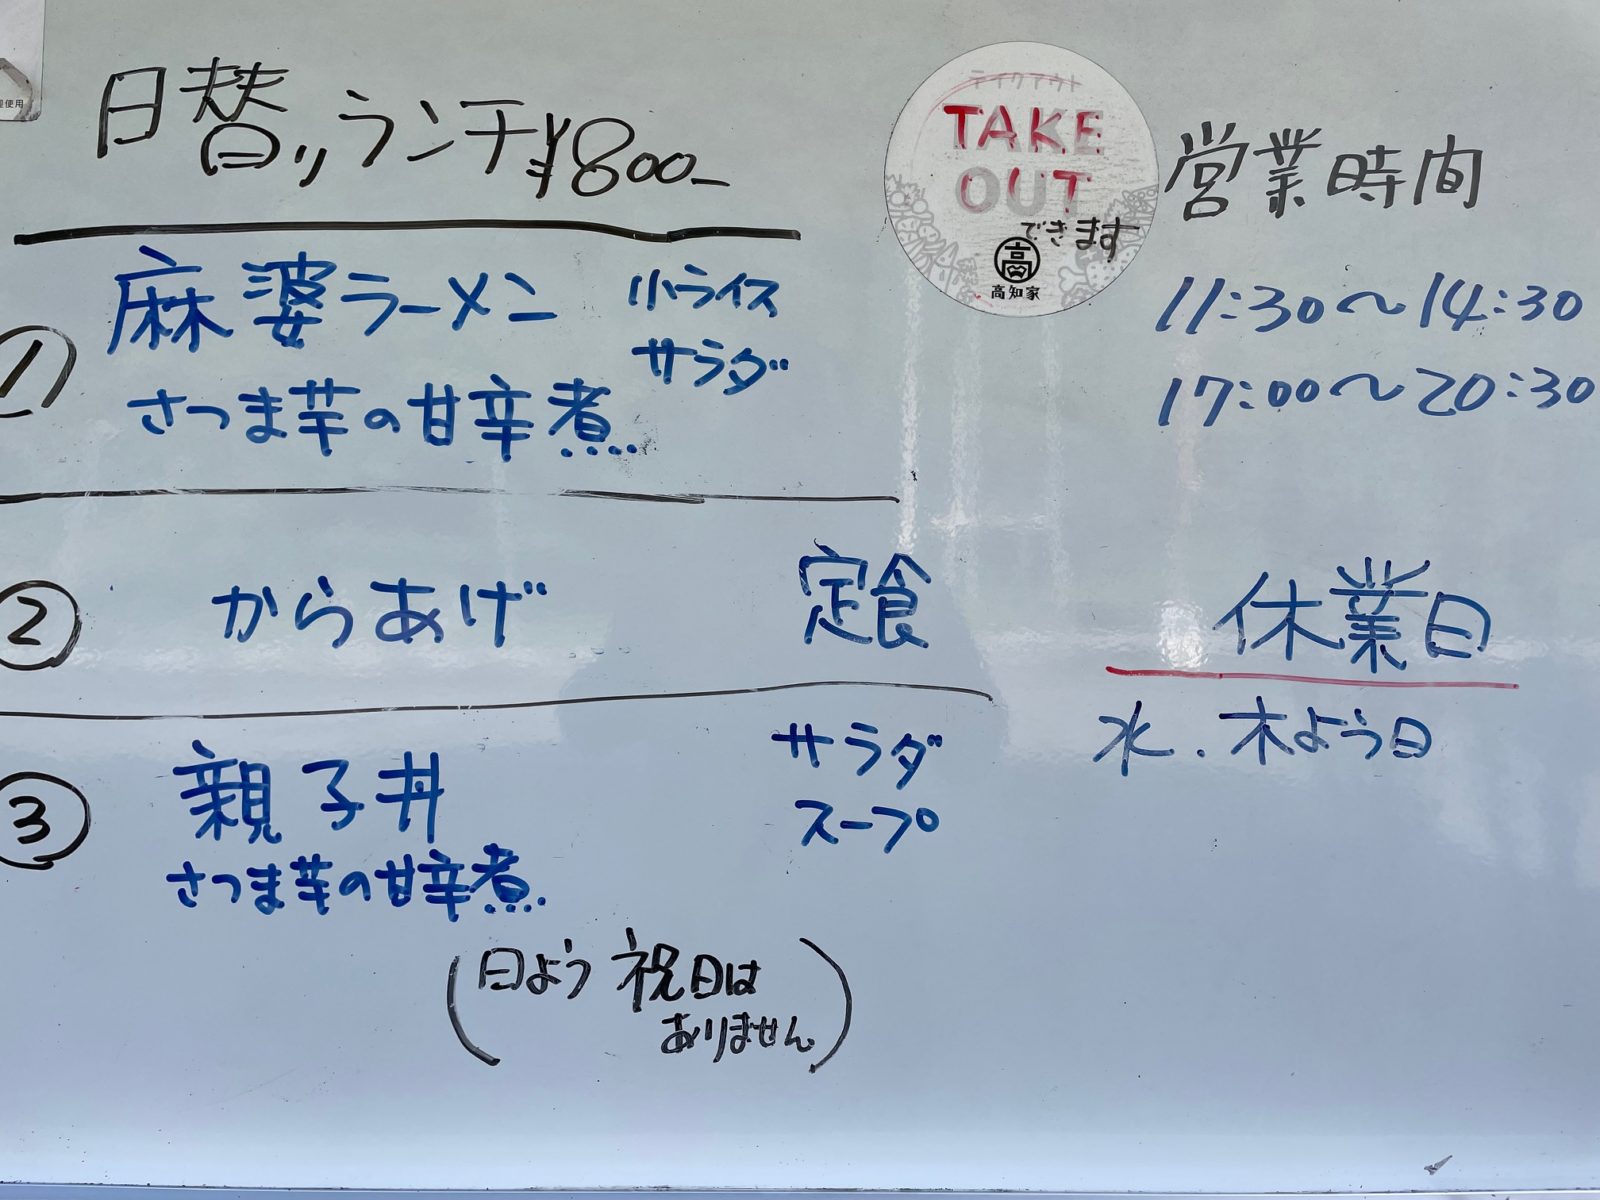 日替りランチ¥800-
① 麻婆ラーメン 小ライス
サラダ
さつま芋の甘辛煮
② からあげ 定食
③ 親子丼 サラダ
スープ
さつま芋の甘辛煮
(日よう 祝日は
ありません)
テイクアウト
TAKE
OUT
できます
高
高知家
営業時間
11:30〜14:30
17:00〜20:30
休業日
水.木よう日
使用